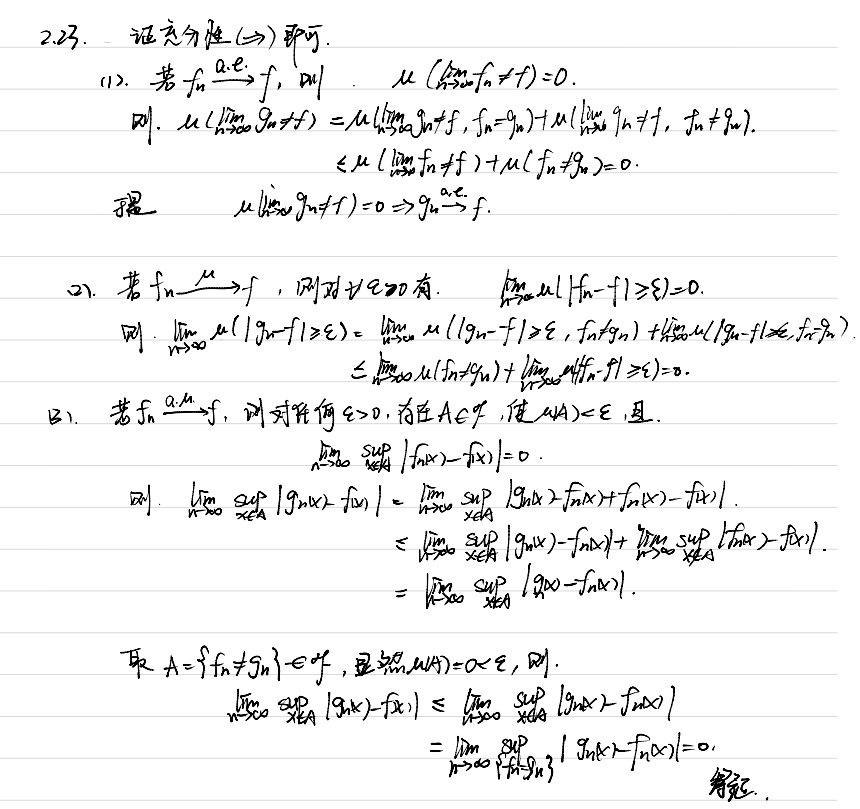 2.23. 证充分性(⇒)即可.
(1). 若 fₙ —a.e.→ f, 则 μ(lim_{n→∞} fₙ≠f)=0.
则. μ(lim_{n→∞} gₙ≠f) = μ(lim_{n→∞} gₙ≠f, fₙ=gₙ)+μ(lim_{n→∞} gₙ≠f, fₙ≠gₙ).
≤ μ(lim_{n→∞} fₙ≠f)+μ(fₙ≠gₙ)=0.
于是 μ(lim_{n→∞} gₙ≠f)=0 ⇒ gₙ —a.e.→ f.
(2). 若 fₙ —μ→ f, 则对∀ε>0有. lim_{n→∞} μ(|fₙ-f|≥ε)=0.
则. lim_{n→∞} μ(|gₙ-f|≥ε)= lim_{n→∞} μ(|gₙ-f|≥ε, fₙ≠gₙ)+lim_{n→∞} μ(|gₙ-f|≥ε, fₙ=gₙ)
≤ lim_{n→∞} μ(fₙ≠gₙ)+lim_{n→∞} μ(|fₙ-f|≥ε)=0.
(3). 若 fₙ —a.u.→ f, 则对任何ε>0, 存在A∈ℱ, 使μ(A)<ε, 且.
lim_{n→∞} sup_{x∉A} |fₙ(x)-f(x)|=0.
则. lim_{n→∞} sup_{x∉A} |gₙ(x)-f(x)| = lim_{n→∞} sup_{x∉A} |gₙ(x)-fₙ(x)+fₙ(x)-f(x)|.
≤ lim_{n→∞} sup_{x∉A} |gₙ(x)-fₙ(x)|+lim_{n→∞} sup_{x∉A} |fₙ(x)-f(x)|.
= lim_{n→∞} sup_{x∉A} |gₙ(x)-fₙ(x)|.
取 A={fₙ≠gₙ}∈ℱ, 显然μ(A)=0<ε, 则.
lim_{n→∞} sup_{x∉A} |gₙ(x)-f(x)| ≤ lim_{n→∞} sup_{x∉A} |gₙ(x)-fₙ(x)|
= lim_{n→∞} sup_{{fₙ=gₙ}} |gₙ(x)-fₙ(x)|=0.
得证.